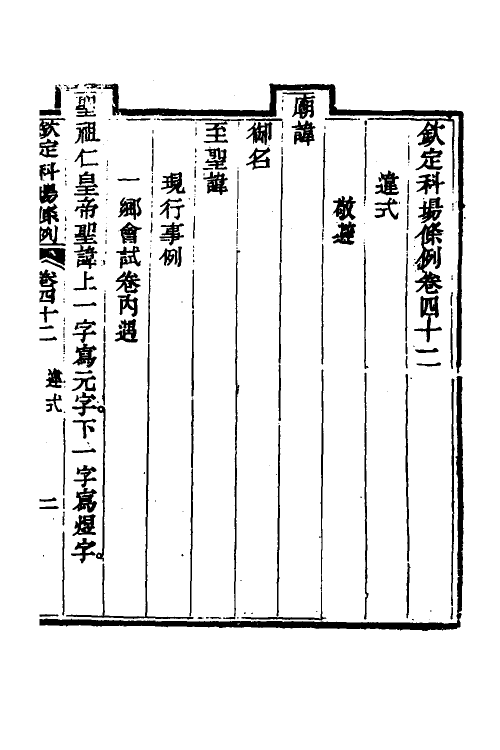 欽定科場條例卷四十二
違式
敬避
廟諱
御名
至聖諱
現行事例
一鄉會試卷內遇
聖祖仁皇帝聖諱上一字寫元字。下一字寫煜字。
欽定科場條例
卷四十二
違式
二